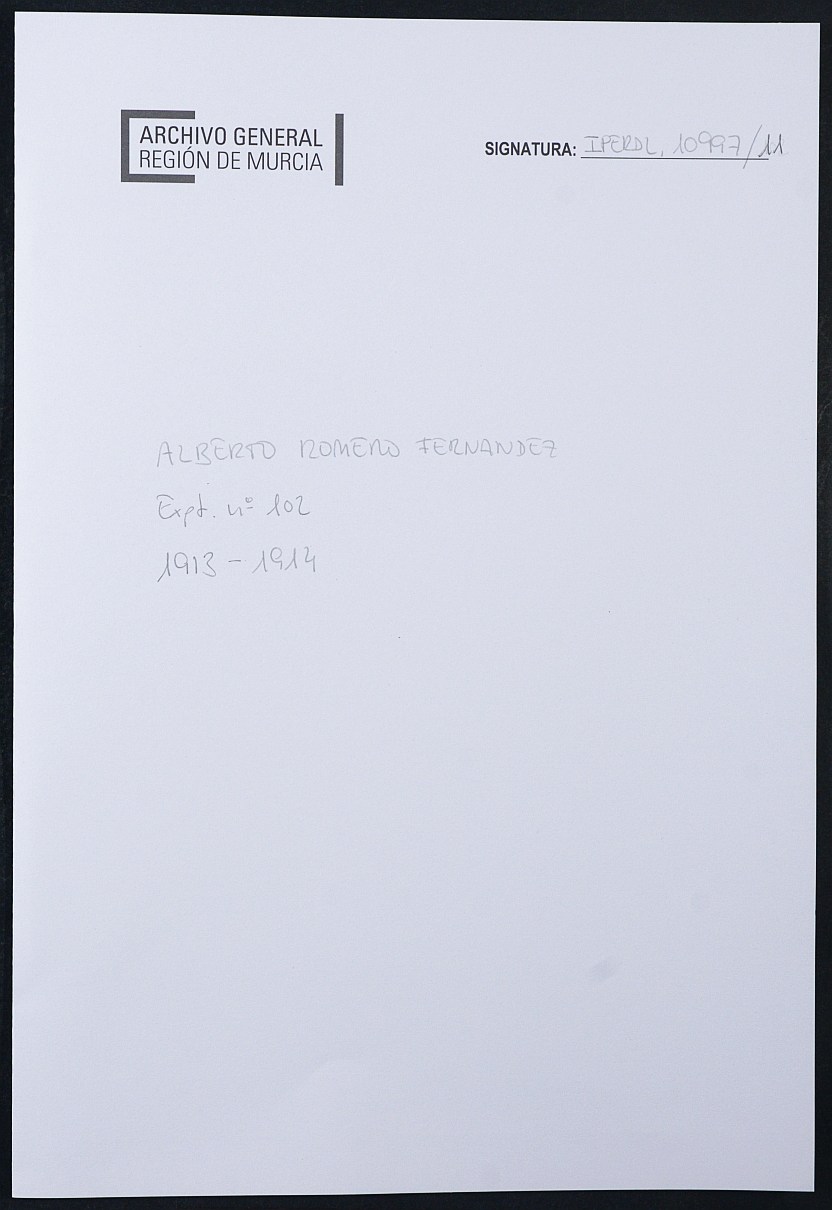 ARCHIVO GENERAL
REGIÓN DE MURCIA
SIGNATURA: IPERDL, 10997/11
ALBERTO ROMERO FERNANDEZ
Expt. nº 102
1913 - 1914